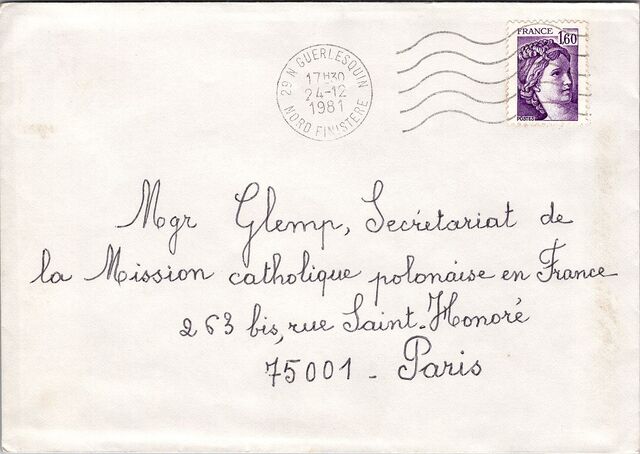 FRANCE 1,60
POSTES
29 N GUERLESQUIN
17H30
24-12
1981
NORD FINISTERE
Mgr Glemp, Secrétariat de
la Mission catholique polonaise en France
263 bis, rue Saint-Honoré
75001 - Paris